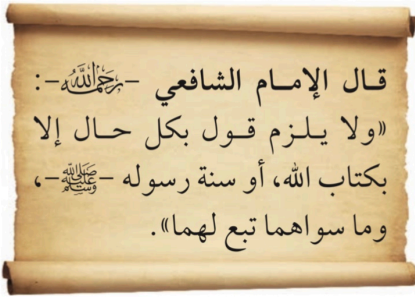 قال الإمام الشافعي -رحمه الله-:
«ولا يلزم قول بكل حال إلا
بكتاب الله، أو سنة رسوله -ﷺ-،
وما سواهما تبع لهما».